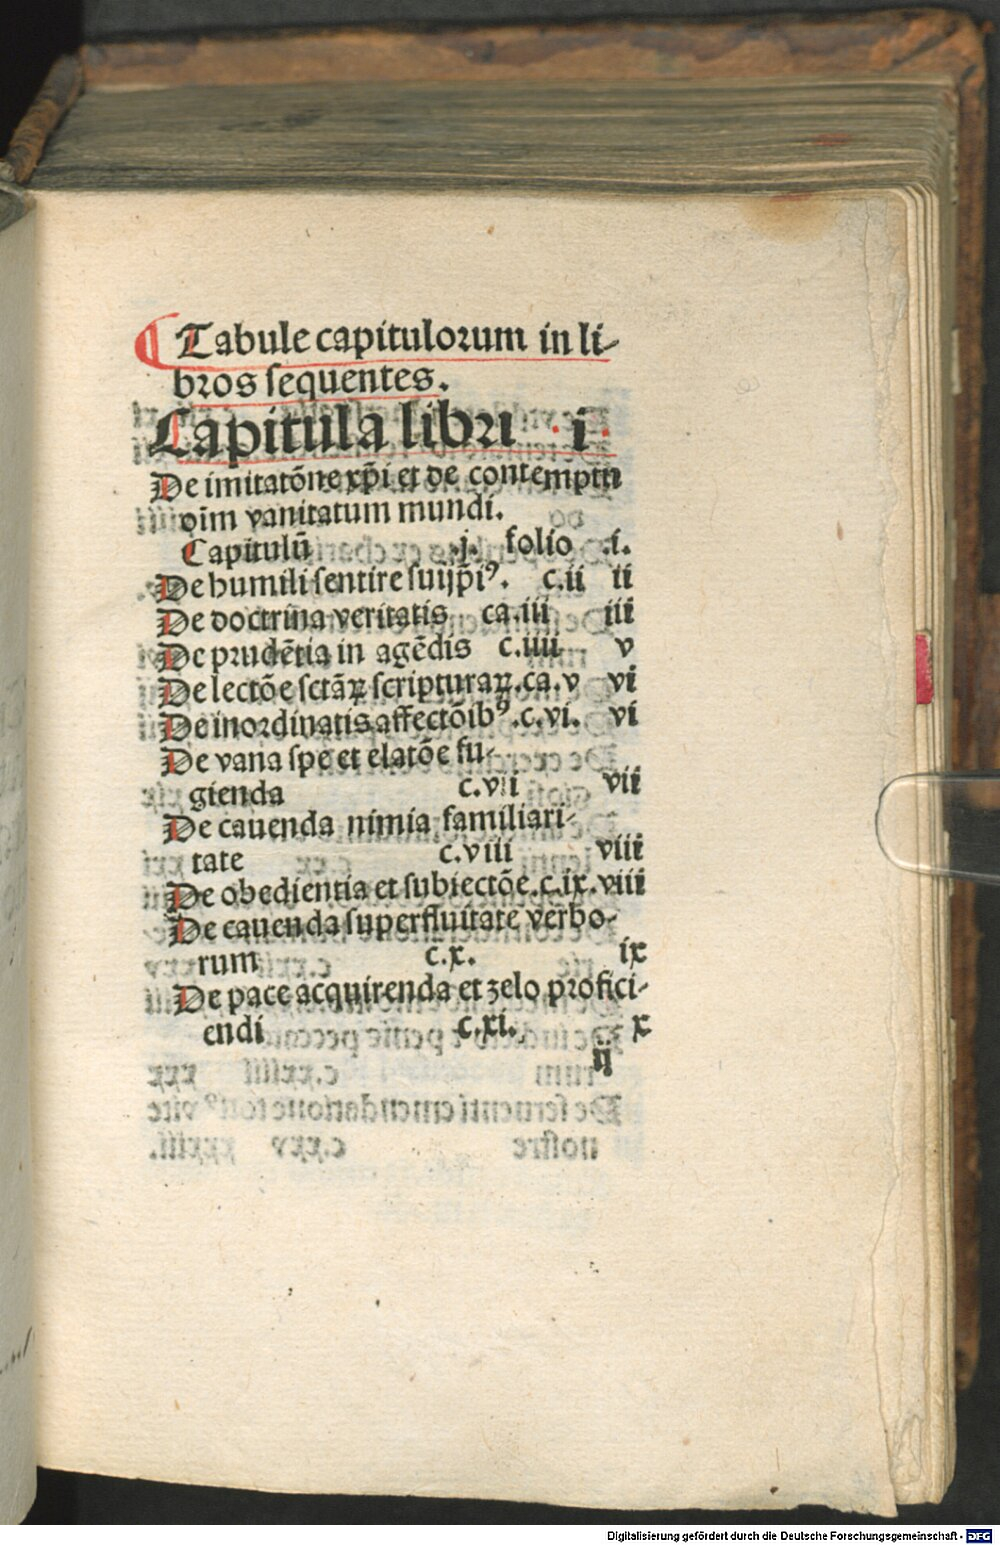 ¶ Tabule capitulorum in li-
bros sequentes.
Capitula libri · i ·
De imitatõne xp̃i et de contemptu
oim̃ vanitatum mundi.
Capitulũ .j. folio .i.
De humili sentire suijp̃iꝰ. c.ii ii
De doctrina veritatis ca.iii iii
De prudẽtia in agẽdis c.iiii v
De lectõe sctãꝝ scripturaꝝ.ca.v vi
De inordinatis affectõibꝰ.c.vi. vi
De vana spe et elatõe fu-
gienda c.vii vii
De cauenda nimia familiari-
tate c.viii viii
De obedientia et subiectõe.c.ix.viii
De cauenda superfluitate verbo-
rum c.x. ix
De pace acquirenda et zelo profici-
endi c.xi. x
ij
Digitalisierung gefördert durch die Deutsche Forschungsgemeinschaft - DFG